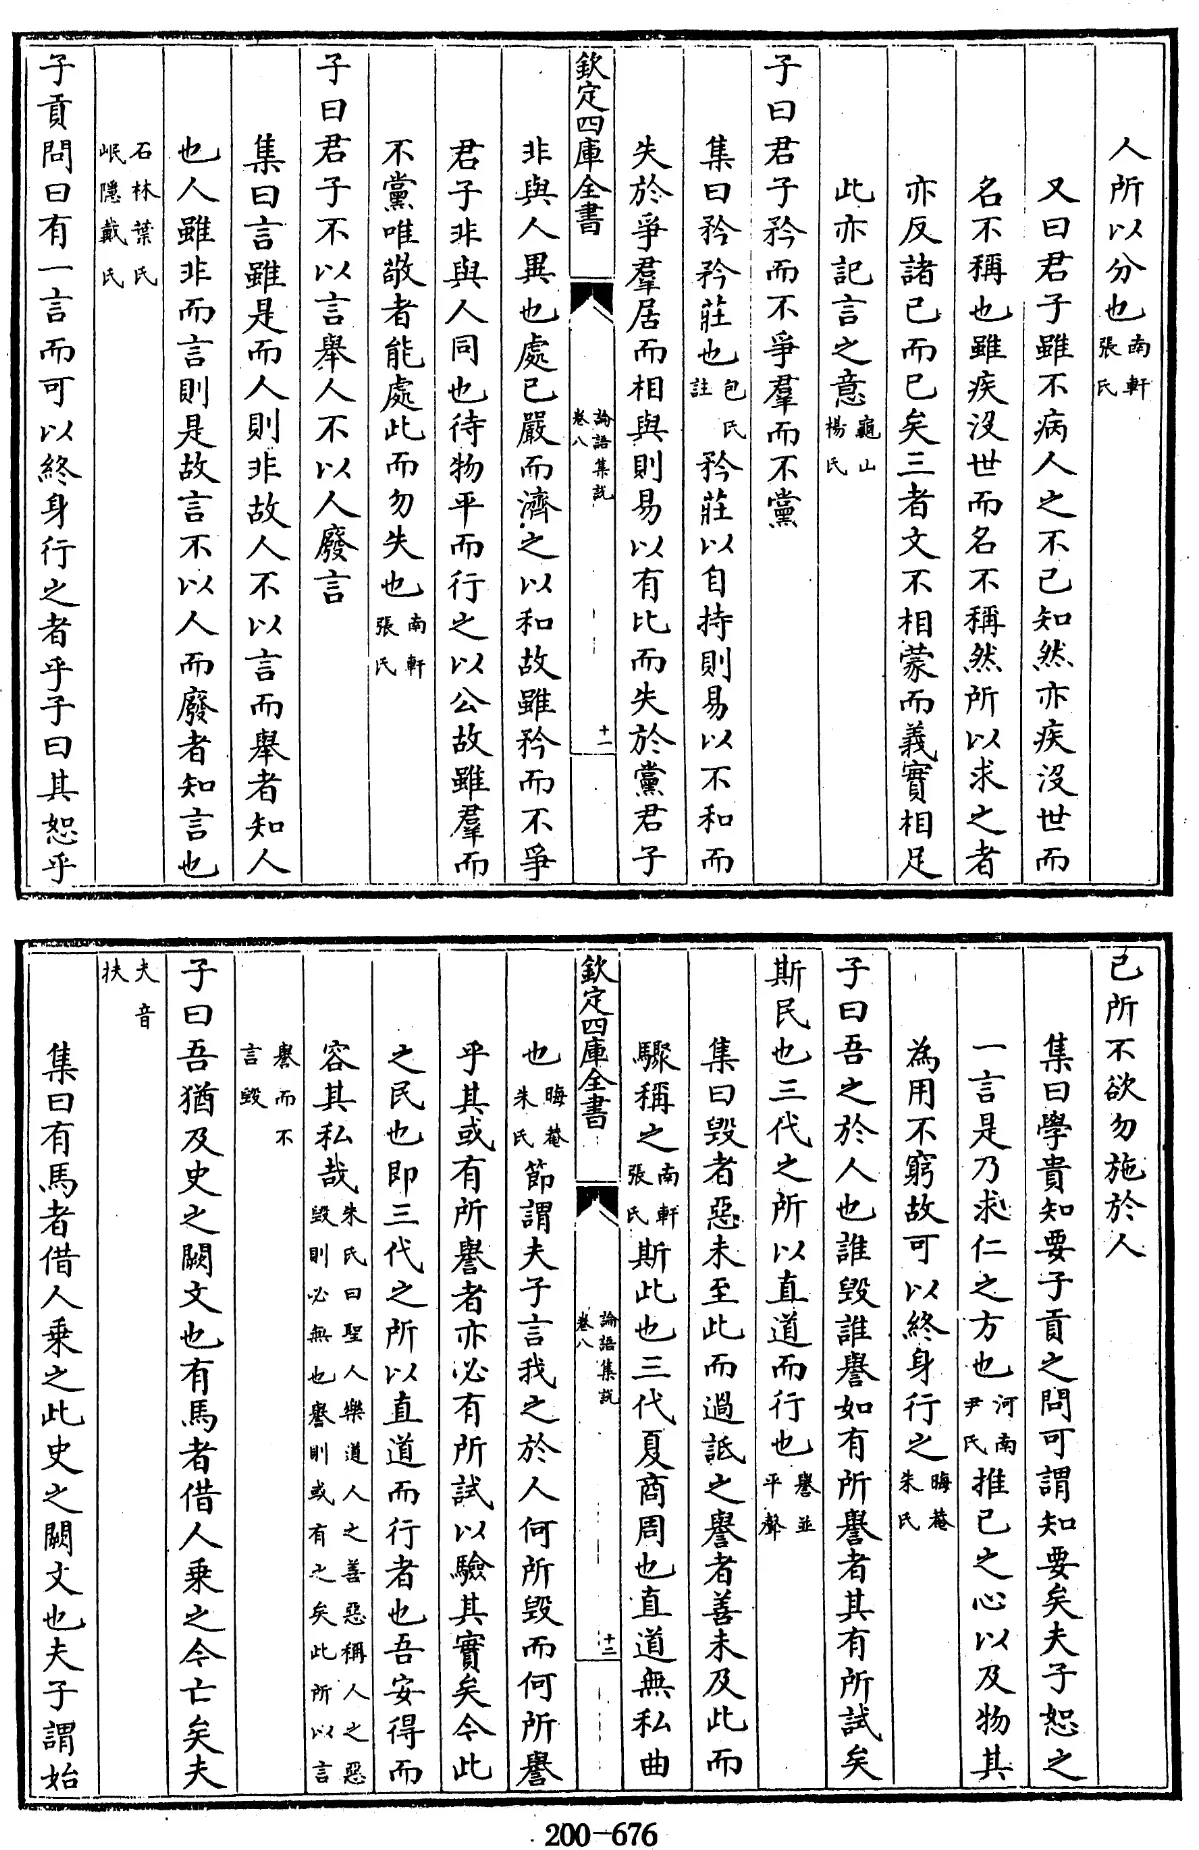 人所以分也南軒張氏
又曰君子雖不病人之不己知然亦疾沒世而
名不稱也雖疾沒世而名不稱然所以求之者
亦反諸己而已矣三者文不相蒙而義實相足
此亦記言之意龜山楊氏
子曰君子矜而不爭羣而不黨
集曰矜矜莊也包氏註矜莊以自持則易以不和而
失於爭羣居而相與則易以有比而失於黨君子
欽定四庫全書
論語集説
卷八
十一
非與人異也處已嚴而濟之以和故雖矜而不爭
君子非與人同也待物平而行之以公故雖羣而
不黨唯敬者能處此而勿失也南軒張氏
子曰君子不以言舉人不以人廢言
集曰言雖是而人則非故人不以言而舉者知人
也人雖非而言則是故言不以人而廢者知言也
石林葉氏岷隱戴氏
子貢問曰有一言而可以終身行之者乎子曰其恕乎
己所不欲勿施於人
集曰學貴知要子貢之問可謂知要矣夫子恕之
一言是乃求仁之方也河南尹氏推己之心以及物其
為用不窮故可以終身行之晦菴朱氏
子曰吾之於人也誰毀誰譽如有所譽者其有所試矣
斯民也三代之所以直道而行也譽並平聲
集曰毀者惡未至此而過詆之譽者善未及此而
驟稱之南軒張氏斯此也三代夏商周也直道無私曲
欽定四庫全書
論語集説
卷八
十二
也晦菴朱氏節謂夫子言我之於人何所毀而何所譽
乎其或有所譽者亦必有所試以驗其實矣今此
之民也即三代之所以直道而行者也吾安得而
容其私哉朱氏曰聖人樂道人之善惡稱人之惡毀則必無也譽則或有之矣此所以言
譽而不言毀
子曰吾猶及史之闕文也有馬者借人乘之今亡矣夫
夫音扶
集曰有馬者借人乘之此史之闕文也夫子謂始
200-676